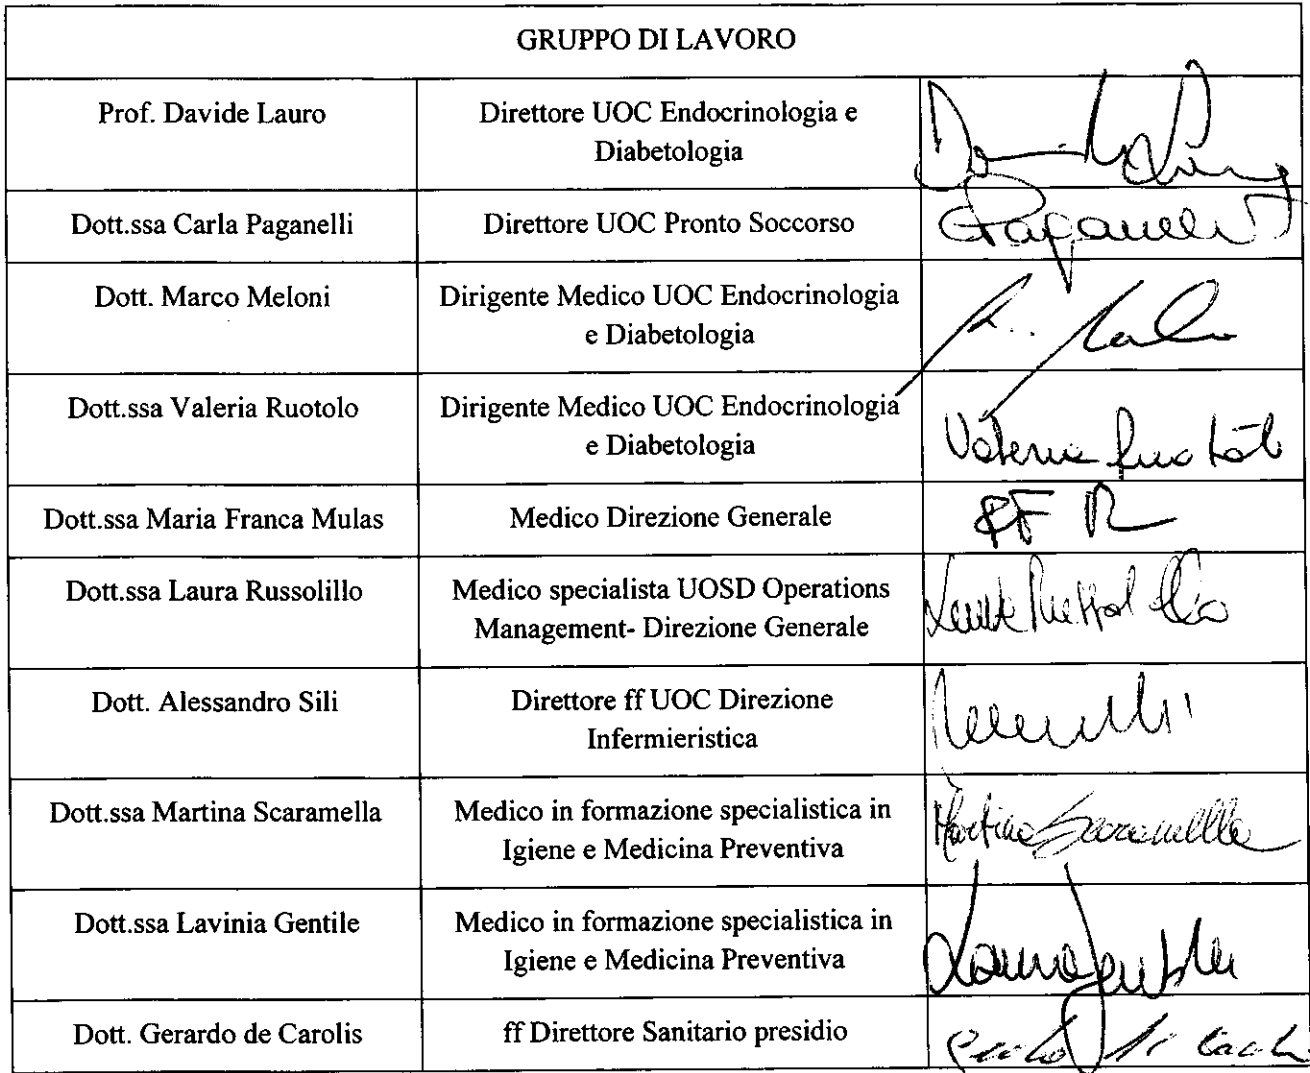 GRUPPO DI LAVORO
Prof. Davide Lauro
Direttore UOC Endocrinologia e
Diabetologia
Dott.ssa Carla Paganelli
Direttore UOC Pronto Soccorso
Paganelli
Dott. Marco Meloni
Dirigente Medico UOC Endocrinologia
e Diabetologia
Dott.ssa Valeria Ruotolo
Dirigente Medico UOC Endocrinologia
e Diabetologia
Valeria Ruotolo
Dott.ssa Maria Franca Mulas
Medico Direzione Generale
Dott.ssa Laura Russolillo
Medico specialista UOSD Operations
Management- Direzione Generale
Dott. Alessandro Sili
Direttore ff UOC Direzione
Infermieristica
Dott.ssa Martina Scaramella
Medico in formazione specialistica in
Igiene e Medicina Preventiva
Martina Scaramella
Dott.ssa Lavinia Gentile
Medico in formazione specialistica in
Igiene e Medicina Preventiva
Dott. Gerardo de Carolis
ff Direttore Sanitario presidio